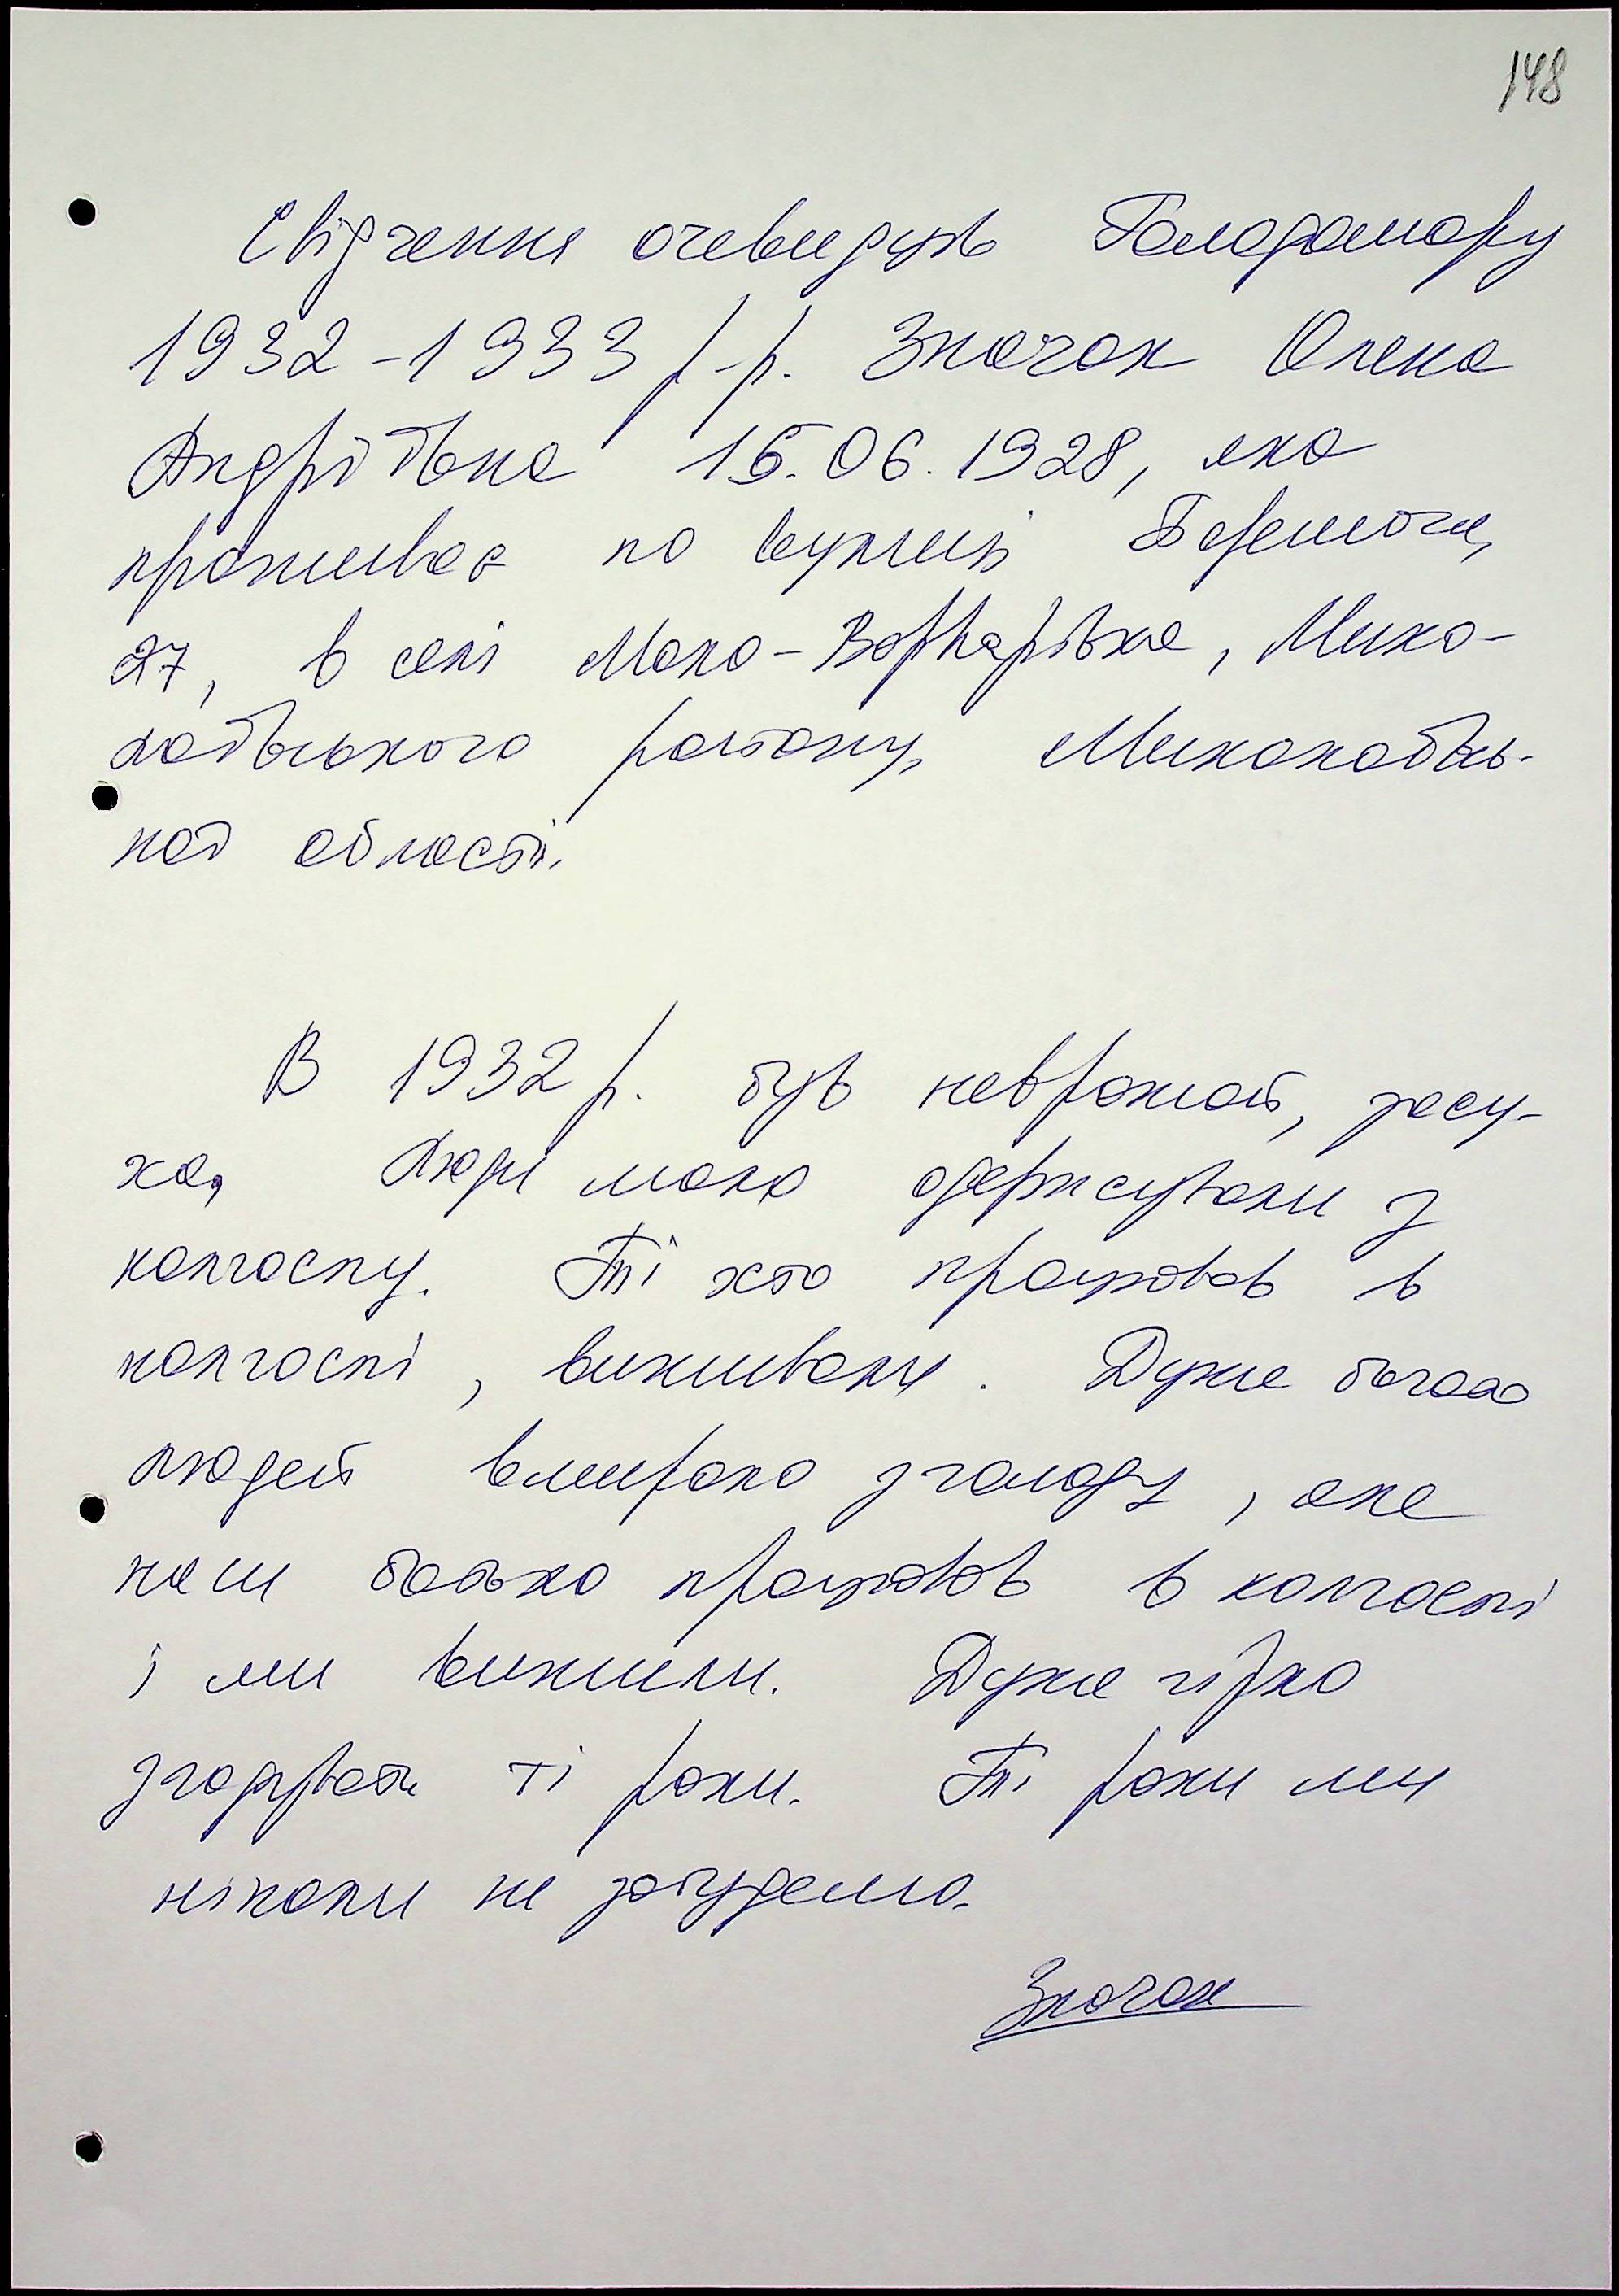 148
Свідчення очевидців Голодомору
1932-1933 р-р. Значок Олена
Андріївна 15.06.1928, яка
проживає по вулиці Перемоги,
27, в селі Мало-Варварівка, Мико-
лаївського району, Миколаївсь-
кої області.
В 1932 р. був неврожай, засу-
ха. Люди мало одержували з
колгоспу. Ті хто працював в
колгоспі, виживали. Дуже багато
людей вмирало з голоду, але
наш батько працював в колгоспі
і ми вижили. Дуже гірко
згадувати ті роки. Ті роки ми
ніколи не забудемо.
Значок